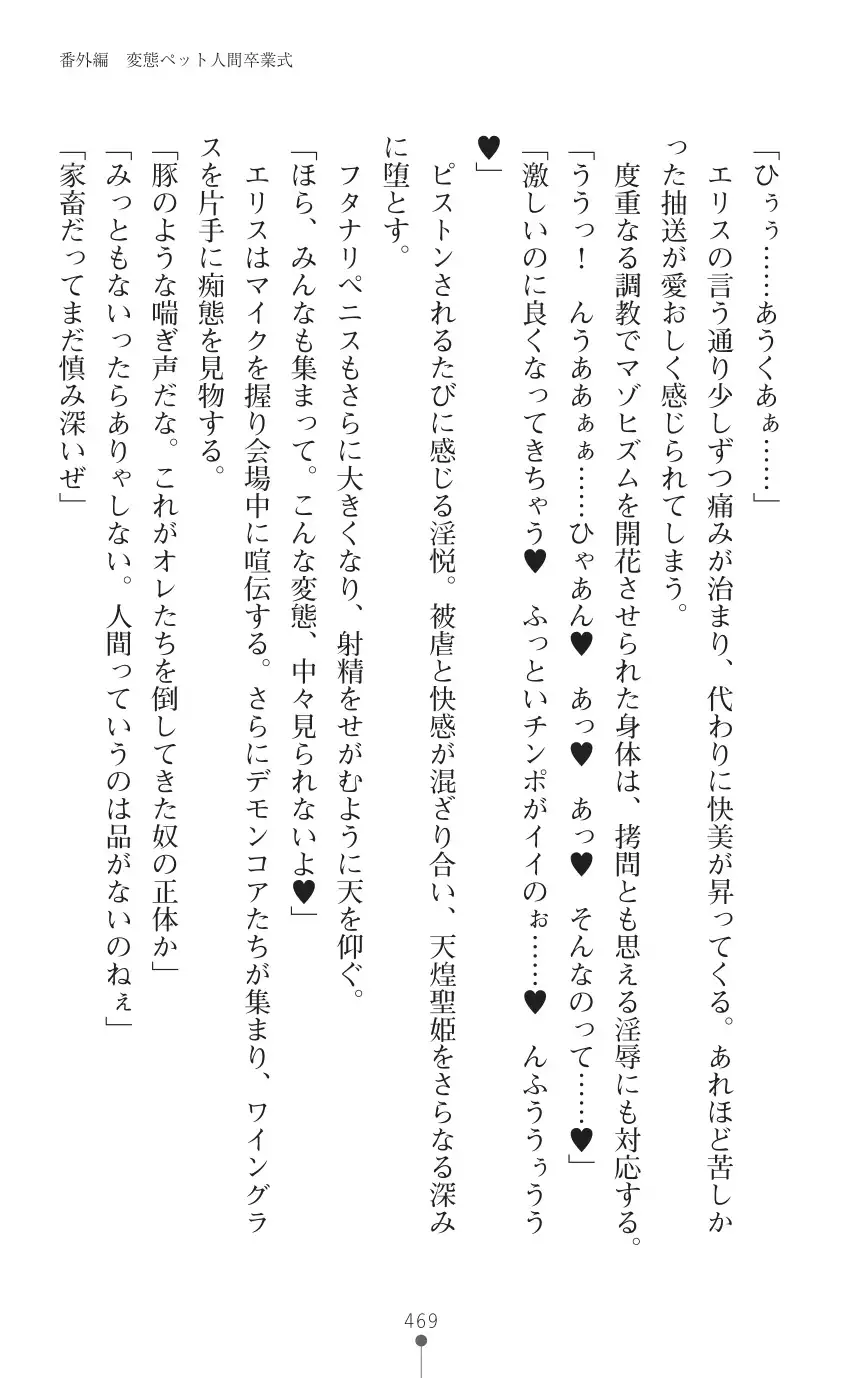 番外編　変態ペット人間卒業式
「ひぅぅ……あうくあぁ……」
　エリスの言う通り少しずつ痛みが治まり、代わりに快美が昇ってくる。あれほど苦しか
った抽送が愛おしく感じられてしまう。
　度重なる調教でマゾヒズムを開花させられた身体は、拷問とも思える淫辱にも対応する。
「ううっ！　んうああぁぁ……ひゃあん♥　あっ♥　あっ♥　そんなのって……♥」
「激しいのに良くなってきちゃう♥　ふっといチンポがイイのぉ……♥　んふううぅうう
♥」
　ピストンされるたびに感じる淫悦。被虐と快感が混ざり合い、天煌聖姫をさらなる深み
に堕とす。
　フタナリペニスもさらに大きくなり、射精をせがむように天を仰ぐ。
「ほら、みんなも集まって。こんな変態、中々見られないよ♥」
　エリスはマイクを握り会場中に喧伝する。さらにデモンコアたちが集まり、ワイングラ
スを片手に痴態を見物する。
「豚のような喘ぎ声だな。これがオレたちを倒してきた奴の正体か」
「みっともないったらありゃしない。人間っていうのは品がないのねぇ」
「家畜だってまだ慎み深いぜ」
469